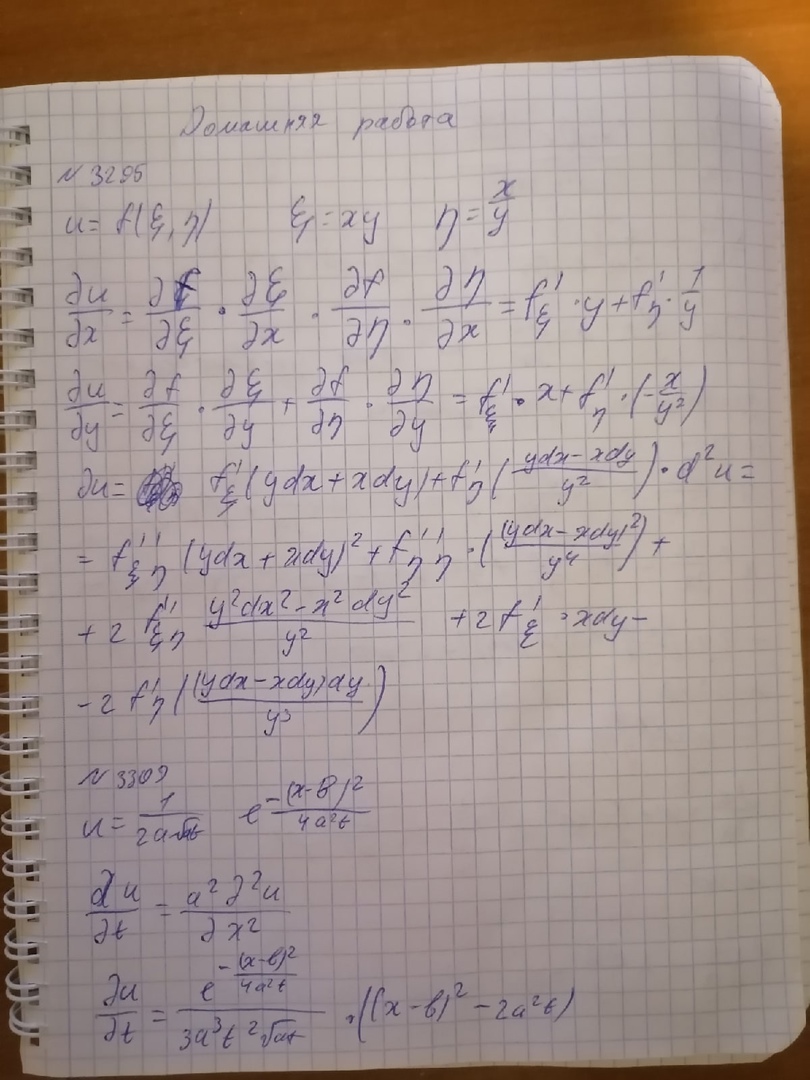 Домашняя работа
№ 3295
u = f(ξ, η)   ξ = xy   η = x/y
∂u/∂x = ∂f/∂ξ · ∂ξ/∂x · ∂f/∂η · ∂η/∂x = f'ξ · y + f'η · 1/y
∂u/∂y = ∂f/∂ξ · ∂ξ/∂y + ∂f/∂η · ∂η/∂y = f'ξ · x + f'η · (-x/y²)
∂u = f'ξ (ydx + xdy) + f'η ((ydx - xdy)/y²) · d²u =
= f''ξη (ydx + xdy)² + f''ηη · ((ydx - xdy)²/y⁴) +
+ 2 f''ξη (y²dx² - x²dy²)/y² + 2 f'ξ · xdy -
- 2 f'η ((ydx - xdy)dy/y³)
№ 3309
u = 1/(2a√πt) e^(-(x-b)²/(4a²t))
∂u/∂t = a²∂²u/∂x²
∂u/∂t = e^(-(x-b)²/(4a²t))/(3a³t²√πt) · ((x-b)² - 2a²t)